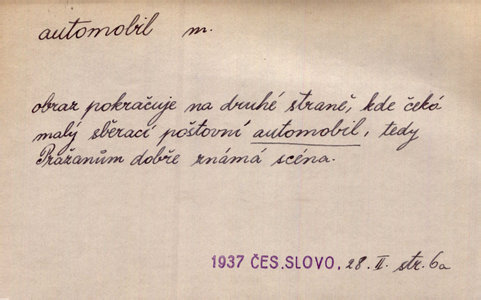 automobil m.
obraz pokračuje na druhé straně, kde čeká
malý sběrací poštovní automobil, tedy
Pražanům dobře známá scéna.
1937 ČES.SLOVO, 28. II. str. 6a